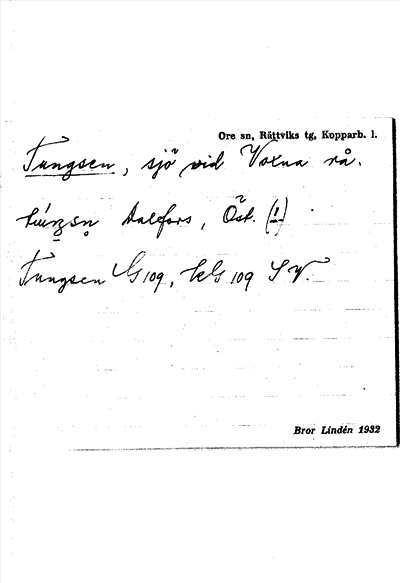 Ore sn, Rättviks tg, Kopparb. l.
Tungsen, sjö vid Voxna rå.
Dalfors, Öst. (!)
Tungsen G 109, kG 109 SV.
Bror Lindén 1932